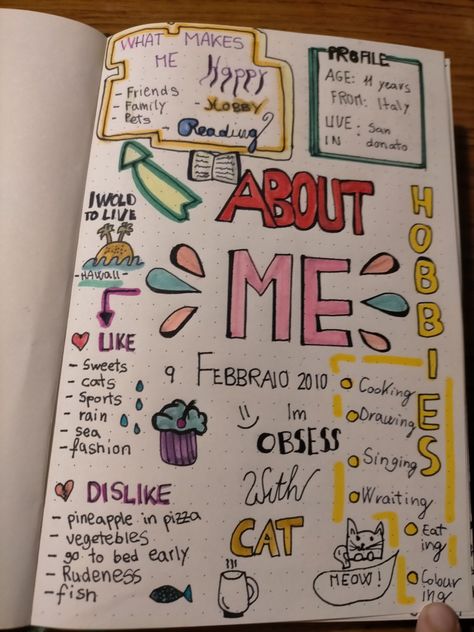 WHAT MAKES
ME Happy
- Friends
- Family
- Pets
- HOBBY
- Reading
PROFILE
AGE: 11 years
FROM: Italy
LIVE: San
IN donato
ABOUT
ME
HOBBIES
I WOLD
TO LIVE
- HAWAII -
LIKE
- Sweets
- cats
- Sports
- rain
- sea
- fashion
9 FEBBRAIO 2010
Im
OBSESS
With
CAT
Cooking
Drawing
Singing
Wraiting
Eat
ing
Colour
ing
DISLIKE
- pineapple in pizza
- vegetebles
- go to bed early
- Rudeness
- fish
MEOW!